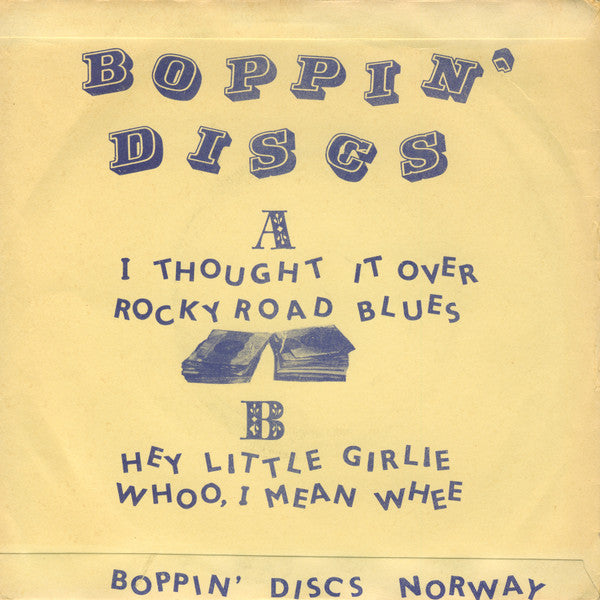 BOPPIN'
DISCS
A
I THOUGHT IT OVER
ROCKY ROAD BLUES
B
HEY LITTLE GIRLIE
WHOO, I MEAN WHEE
BOPPIN' DISCS NORWAY